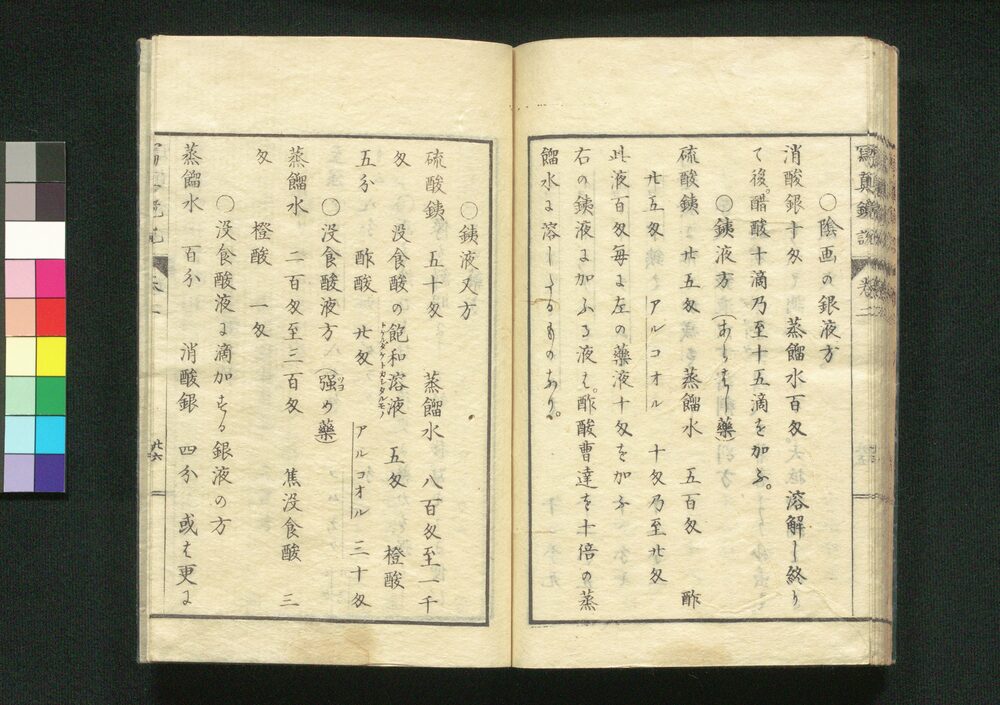 ○陰画の銀液方
消酸銀十匁 蒸餾水百匁 溶解し終り
て後。醋酸十滴乃至十五滴を加ふ。
○銕液方(あらはし藥)
硫酸銕 廿五匁 蒸餾水 五百匁 酢
廿五匁 アルコオル 十匁乃至廿匁
此液百匁毎に左の藥液十匁を加ふ
右の銕液に加ふる液は。酢酸曹達を十倍の蒸
餾水に溶したるものなり。
○銕液又方
硫酸銕 五十匁 蒸餾水 八百匁至一千
匁 没食酸の飽和溶液 五匁 橙酸
五分 酢酸 廿匁 アルコオル 三十匁
○没食酸液方(强め藥)
蒸餾水 二百匁至三百匁 焦没食酸 三
匁 橙酸 一匁
○没食酸液に滴加する銀液の方
蒸餾水 百分 消酸銀 四分 或は更に
寫真鏡説 卷二
廿六